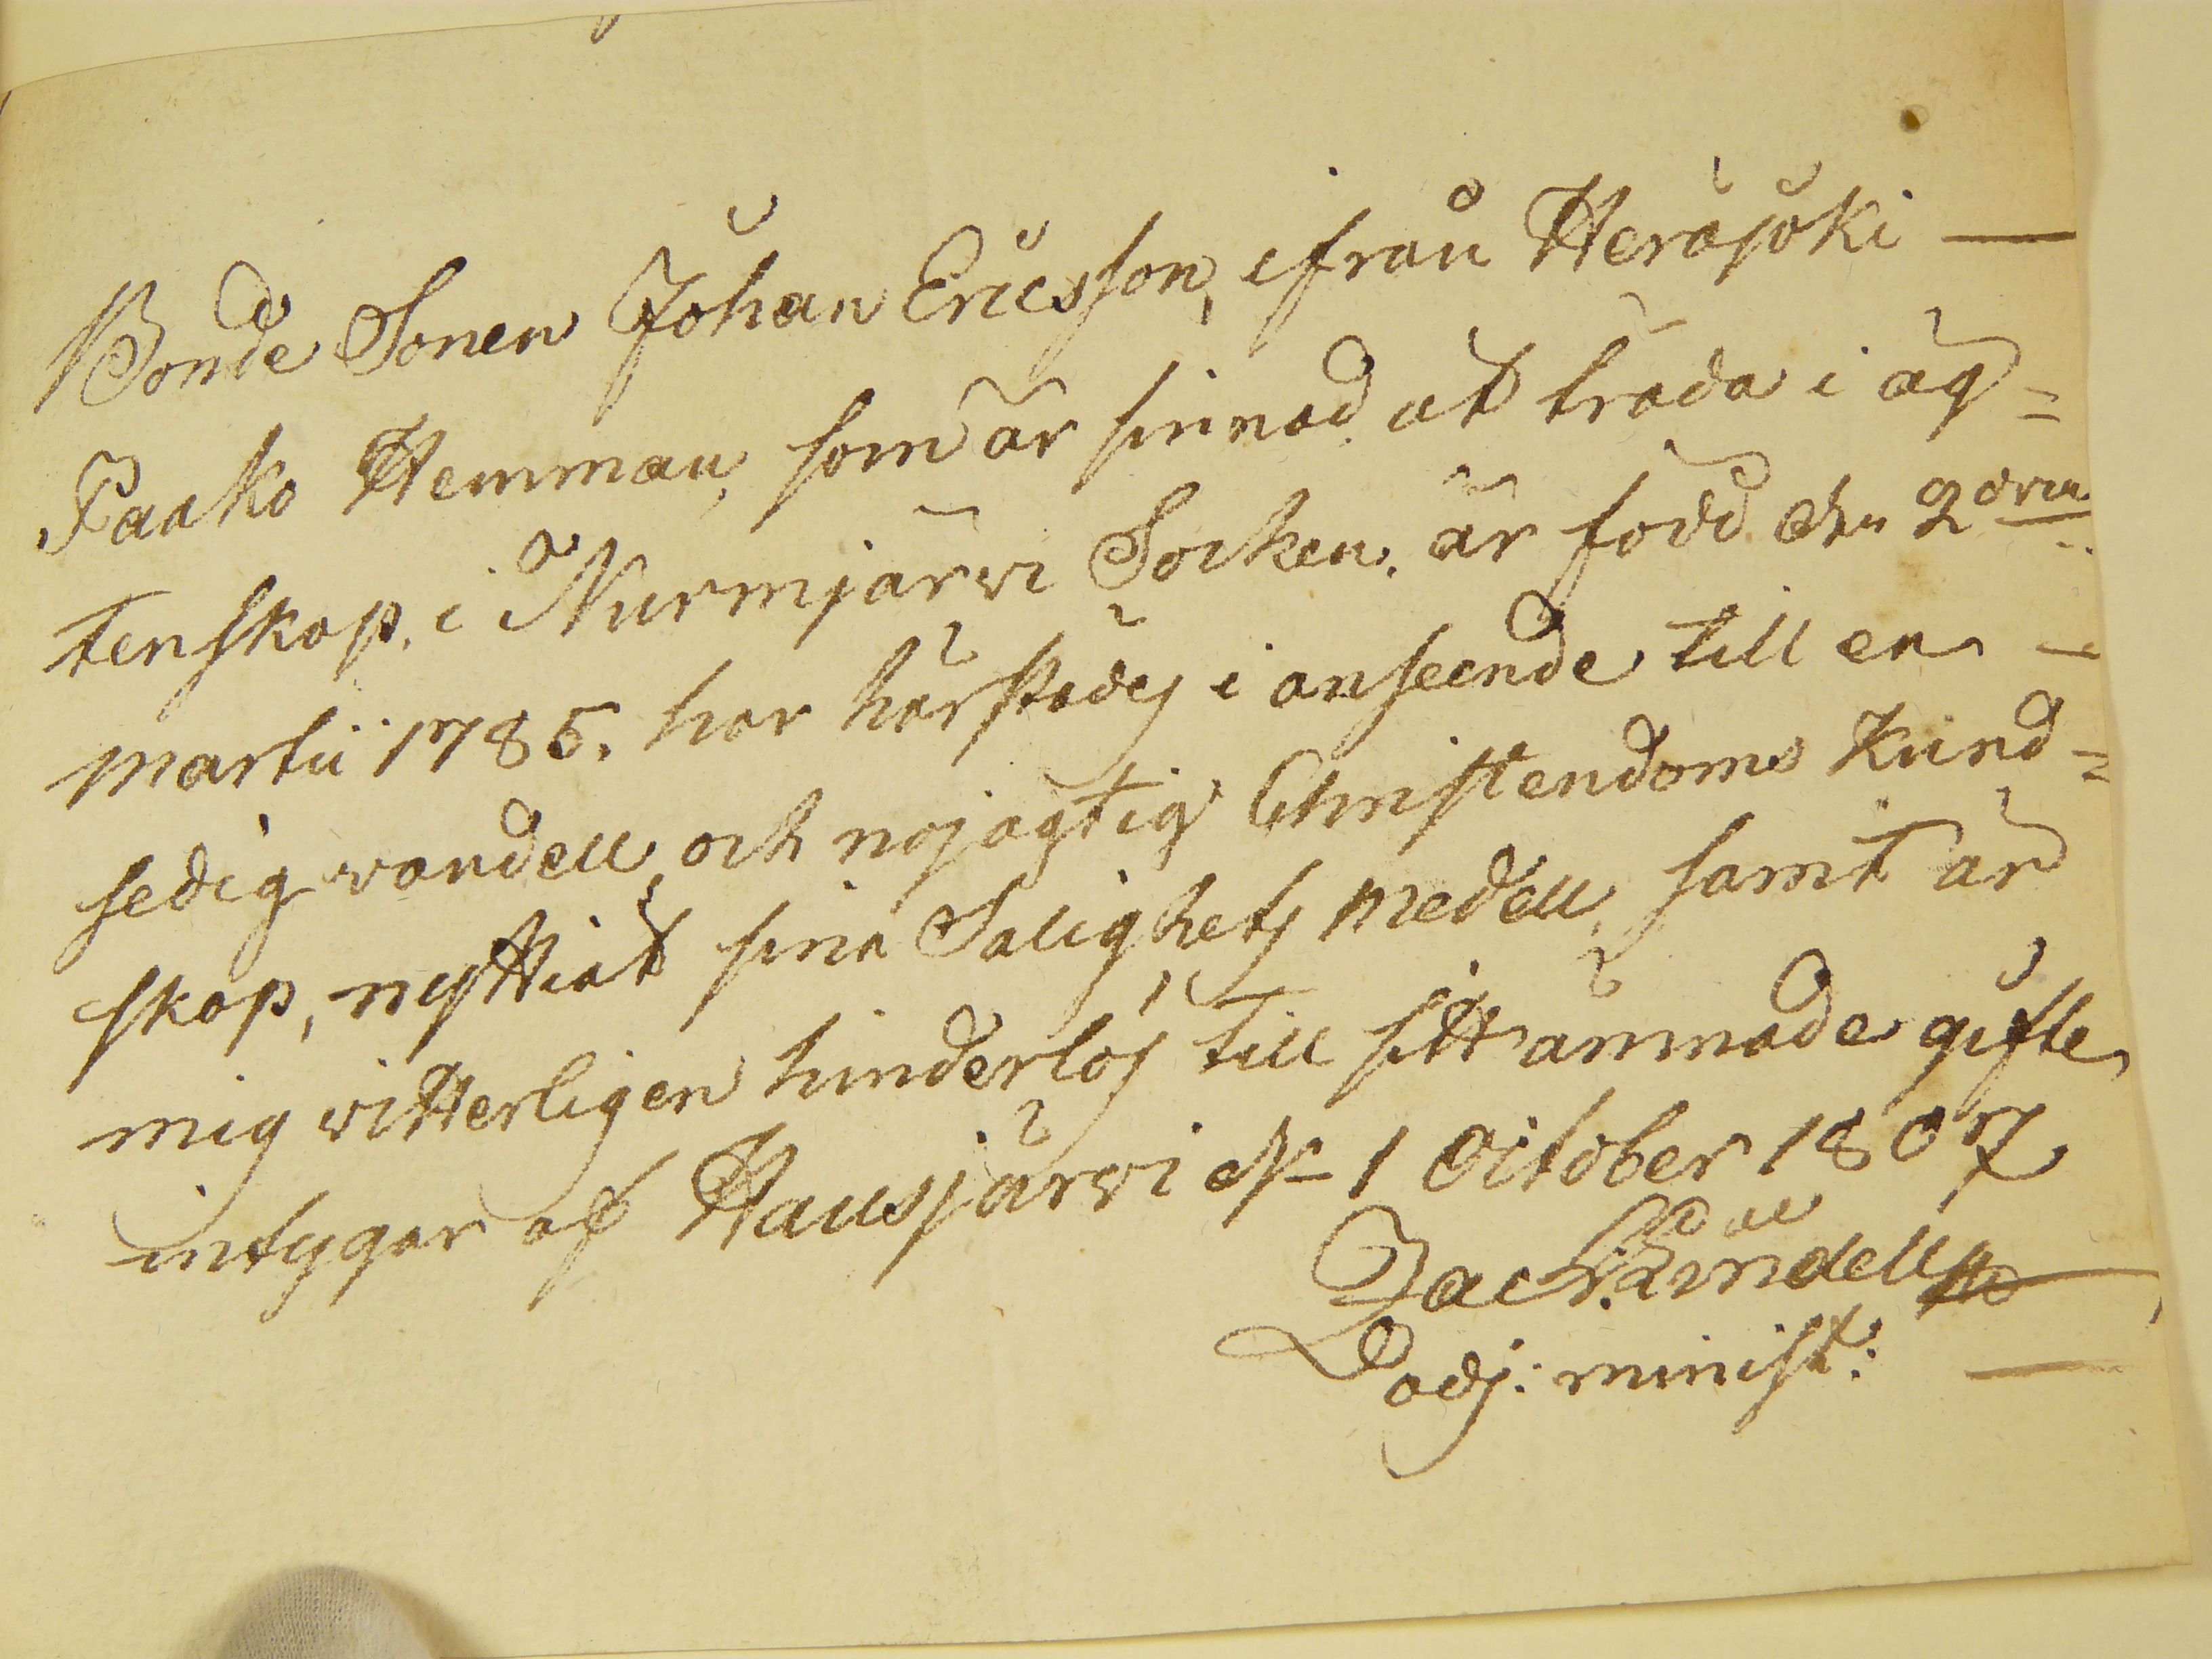 Bonde Sonen Johan Ericsson, ifrån Heräjoki —
Paako Hemman, som är sinnad at träda i äg=
tenskap. i Nurmjärvi Socken, är född den 2dra
martii 1785. har härstädes i anseende till en —
sedig vandell, och nöjagtig Christendoms Kund=
skap, nyttiat sina Salighets medell, samt är
mig vitterligen hinderlös till sitt ämnade gifte,
intygar af Hausjärvi d. 1 October 1807
Zach: Lindell
adj: minist: